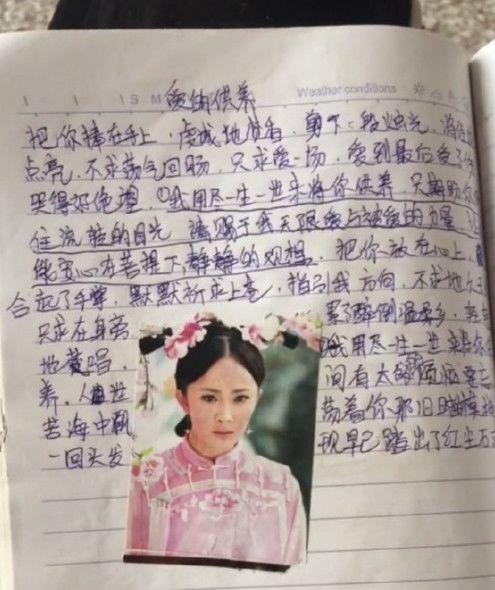 I I I S M Weather conditions
爱的供养
把你捧在手上，虔诚地焚香，剪下一段烛光，将
点亮，不求荡气回肠，只求爱一场，爱到最后受了
哭得好绝望，我用尽一生一世来将你供养，只期盼你
住流转的目光，请赐予我无限爱与被爱的力量，
能安心在菩提下静静的观想。把你放在心上，
合起了手掌，默默祈求上苍，指引我方向，不求地久
只求在身旁 累了醉倒温柔乡，
地 唱，我用尽一生一世来将你
养，人世 间有太的烦恼要忘
苦海中飘 荡着你那旧时模样
一回头发 现早已踏出了红尘万